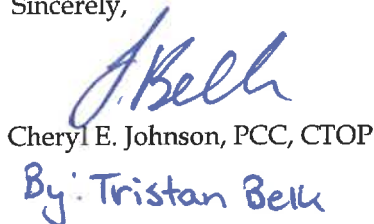 Sincerely,
J. Belk
Cheryl E. Johnson, PCC, CTOP
By: Tristan Belk